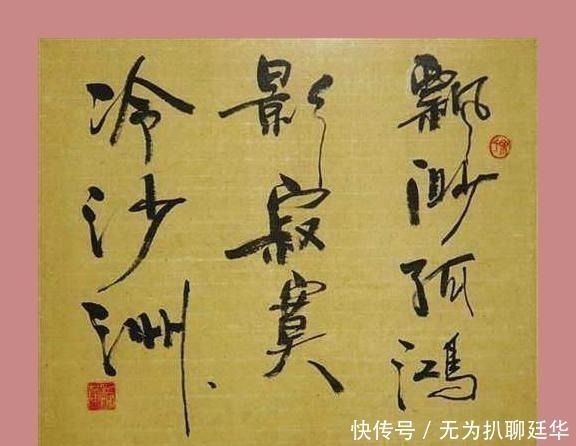 飄渺孤鴻
影寂寞
冷沙洲
快传号 / 无为扒聊廷华